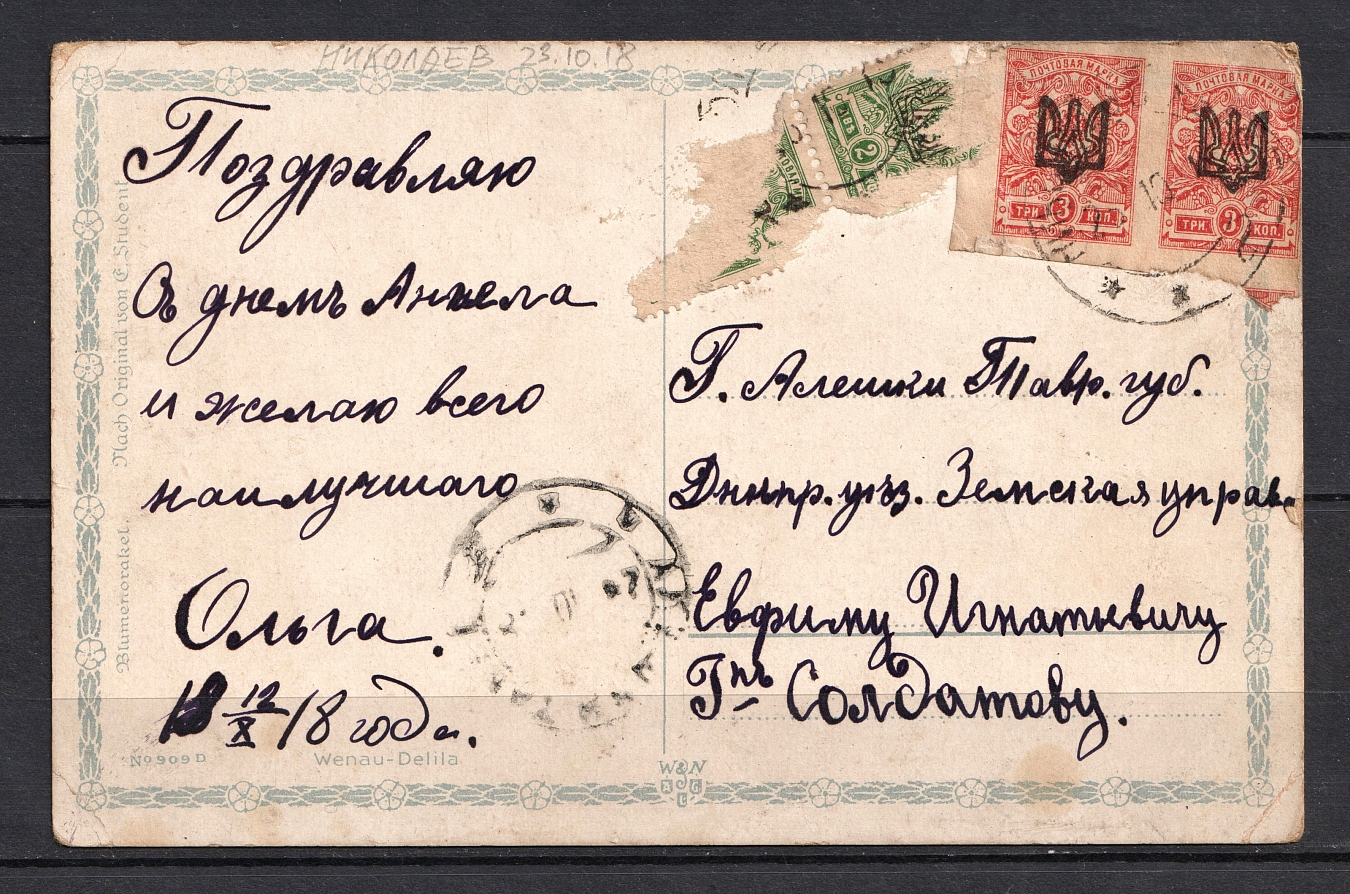 НИКОЛАЕВ 23.10.18
Поздравляю
Съ днемъ Ангела
и желаю всего
наилучшаго
Ольга.
12/X 18 года.
ПОЧТОВАЯ МАРКА
ТРИ 3 КОП.
ПОЧТОВАЯ МАРКА
ТРИ 3 КОП.
ДВѢ 2
Г. Алешки Тавр. губ.
Днѣпр. уѣз. Земская управа
Евфиму Игнатьевичу
Гпъ Солдатову.
Nach Original von E. Student
Blumenorakel.
No 909 D
Wenau-Delila
W&N